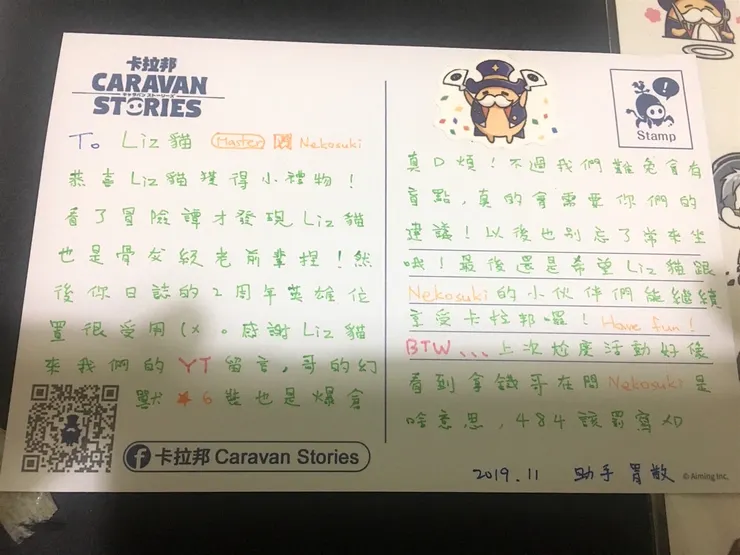 卡拉邦
CARAVAN
キャラバンストーリーズ
STORIES
To Liz貓 Master Nekosuki
恭喜Liz貓獲得小禮物!
看了冒險譚才發現Liz貓
也是骨灰級老前輩捏!然
後你日誌的2周年英雄位
置很受用(x。感謝Liz貓
來我們的YT留言,哥的幻
獸★6獎也是爆會
卡拉邦 Caravan Stories
Stamp
真D煩!不過我們難免會有
盲點,真的會需要你們的
建議!以後也別忘了常來坐
哦!最後還是希望Liz貓跟
Nekosuki的小伙伴們能繼續
享受卡拉邦喔!Have fun!
BTW、、、上次尬度活動好像
看到拿錢哥在問Nekosuki是
啥意思,484該罰寫XD
2019.11 助手 冒散
© Aiming Inc.